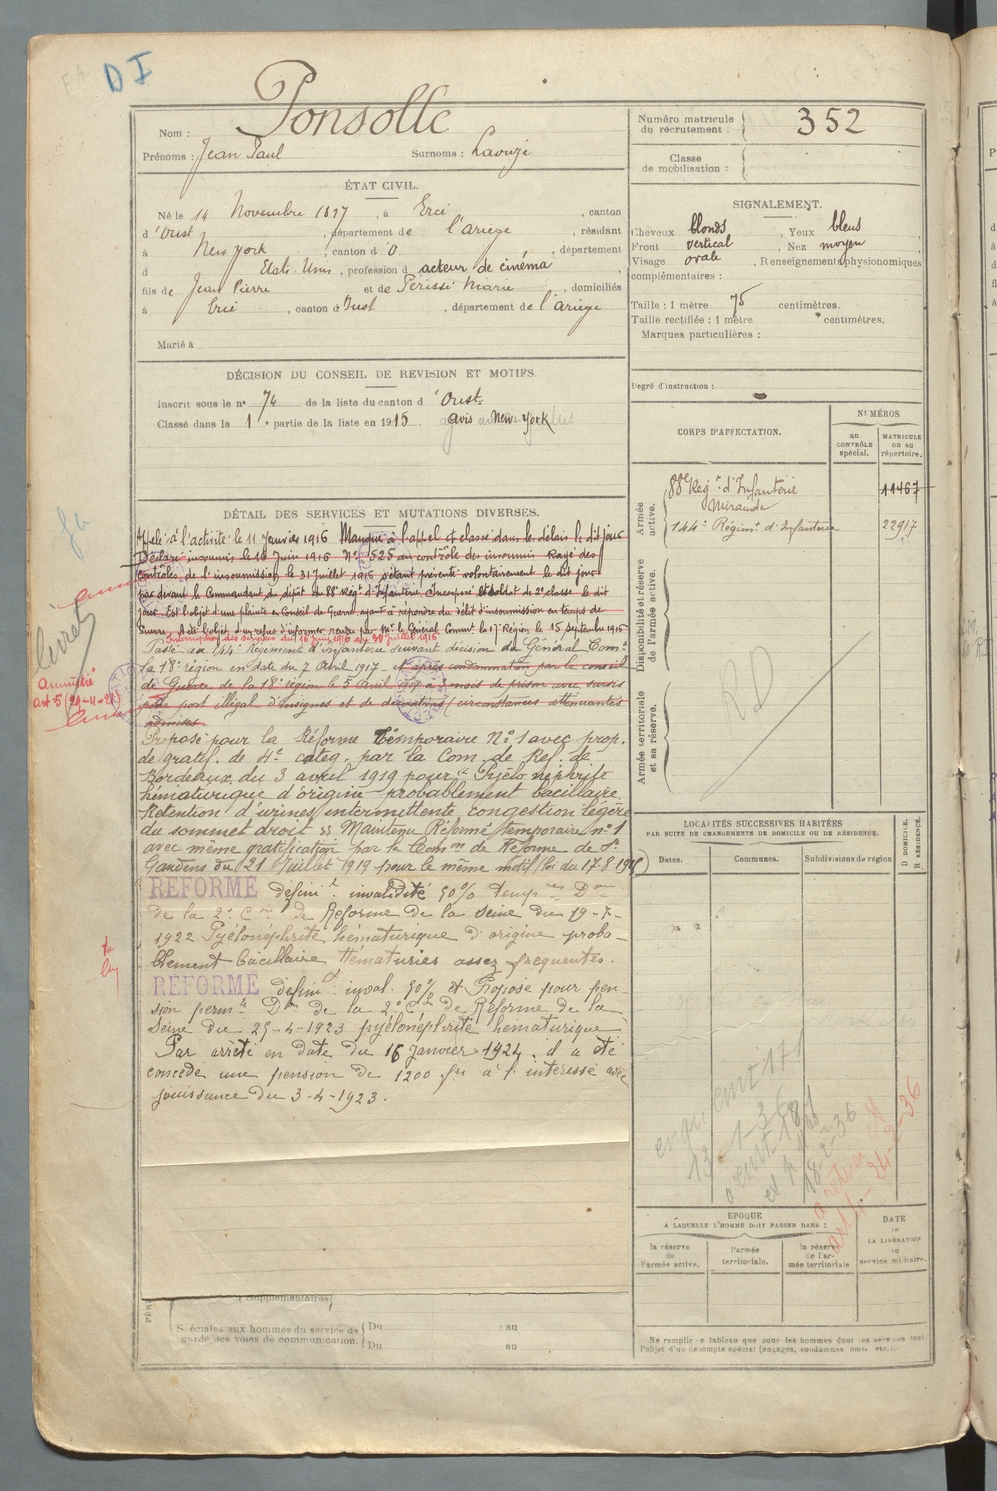 D I
Nom : Ponsolle
Prénoms : Jean Paul Surnoms :
ÉTAT CIVIL.
Né le 14 Novembre 1897, à Ercé, canton
d'Oust, département de l'Ariège, résidant
à New york, canton d 0, département
d Etats-Unis, profession d acteur de cinéma
fils de Jean Pierre et de Périssé Marie, domiciliés
à Ercé, canton d'Oust, département de l'Ariège
Marié à
DÉCISION DU CONSEIL DE REVISION ET MOTIFS.
Inscrit sous le n° 74 de la liste du canton d'Oust.
Classé dans la 1e partie de la liste en 1915. avis New-York
DÉTAIL DES SERVICES ET MUTATIONS DIVERSES.
Appelé à l'activité le 11 Janvier 1916 Manque à l'appel et classé dans les délais le dit jour
Déclaré insoumis le 16 Juin 1916 N° 525 au contrôle des insoumis Rayé des
contrôles de l'insoumission le 31 Juillet 1916 s'étant présenté volontairement le dit jour
par devant le Commandant du dépôt du 88e Regt d'Infanterie, Incorporé et soldat de 2e classe le dit
jour Est l'objet d'une plainte en Conseil de Guerre ayant à répondre du délit d'insoumission en temps de
Guerre. A été l'objet d'un refus d'informer rendu par Mr le Général Commt la 17e Région le 15 Septembre 1916
Interruption des services du 16 Juin 1916 au 30 juillet 1916
Passé au 144e Régiment d'Infanterie suivant décision du Général Comt
la 18e région en date du 7 Avril 1917 - et après condamnation par le conseil
de Guerre de la 18e région le 5 avril 1917 à 3 mois de prison avec sursis
pour port illégal d'Insignes et de décorations (circonstances atténuantes
admises.
Proposé pour la Réforme Temporaire N° 1 avec prop.
de gratif. de 4e categ. par la Com. de Ref. de
Bordeaux du 3 avril 1919 pour "Pyélo néphrite
hématurique d'origine probablement bacillaire
Rétention d'urines intermittente congestion légère
du sommet droit" Maintenu Réformé temporaire n° 1
avec même gratification par la Comon de Réforme de St
Gaudens du 21 Juillet 1919 pour le même motif (loi du 17-8-1915)
REFORMÉ définit invalidité 50% temp Don
de la 2e Con de Réforme de la Seine du 19-7-
1922 Pyélonéphrite hématurique d'origine proba-
blement bacillaire Hématuries assez fréquentes.
REFORMÉ définit inval. 50% et Proposé pour pen
sion perm. Don de la 2e Con de Réforme de la
Seine du 25-4-1923 pyélonéphrite hématurique
Par arrêté en date du 16 Janvier 1924, il a été
concédé une pension de 1200 frs à l'intéressé avec
jouissance du 3-4-1923.
livret
Amnistié
art 5 (29-4-21)
Supplémentaires
Spéciales aux hommes du service de Du au
garde des voies de communication. Du au
Numéro matricule
du recrutement : 352
Classe
de mobilisation :
SIGNALEMENT.
Cheveux blonds, Yeux bleus,
Front vertical, Nez moyen
Visage ovale, Renseignements physionomiques
complémentaires :
Taille : 1 mètre 75 centimètres.
Taille rectifiée : 1 mètre centimètres.
Marques particulières :
Degré d'instruction :
CORPS D'AFFECTATION.
NUMÉROS
au
CONTRÔLE
spécial.
MATRICULE
OU AU
répertoire.
Armée
active.
88e Regt d'Infanterie 11467
Mirande
144e Régimt d'Infanterie 22917
Disponibilité et réserve
de l'armée active.
Armée territoriale
et sa réserve.
RD
LOCALITÉS SUCCESSIVES HABITÉES
PAR SUITE DE CHANGEMENTS DE DOMICILE OU DE RÉSIDENCE.
Dates.
Communes.
Subdivisions de région
D DOMICILE.
R RÉSIDENCE.
18-2-36
24-2-36
ÉPOQUE
A LAQUELLE L'HOMME DOIT PASSER DANS :
DATE
DE
LA LIBÉRATION
DU
service militaire.
la réserve
de
l'armée active.
l'armée
territoriale.
la réserve
de l'ar-
mée territoriale
Ne remplir ce tableau que pour les hommes dont les services font
l'objet d'un décompte spécial (engagés, condamnés, omis, etc.).